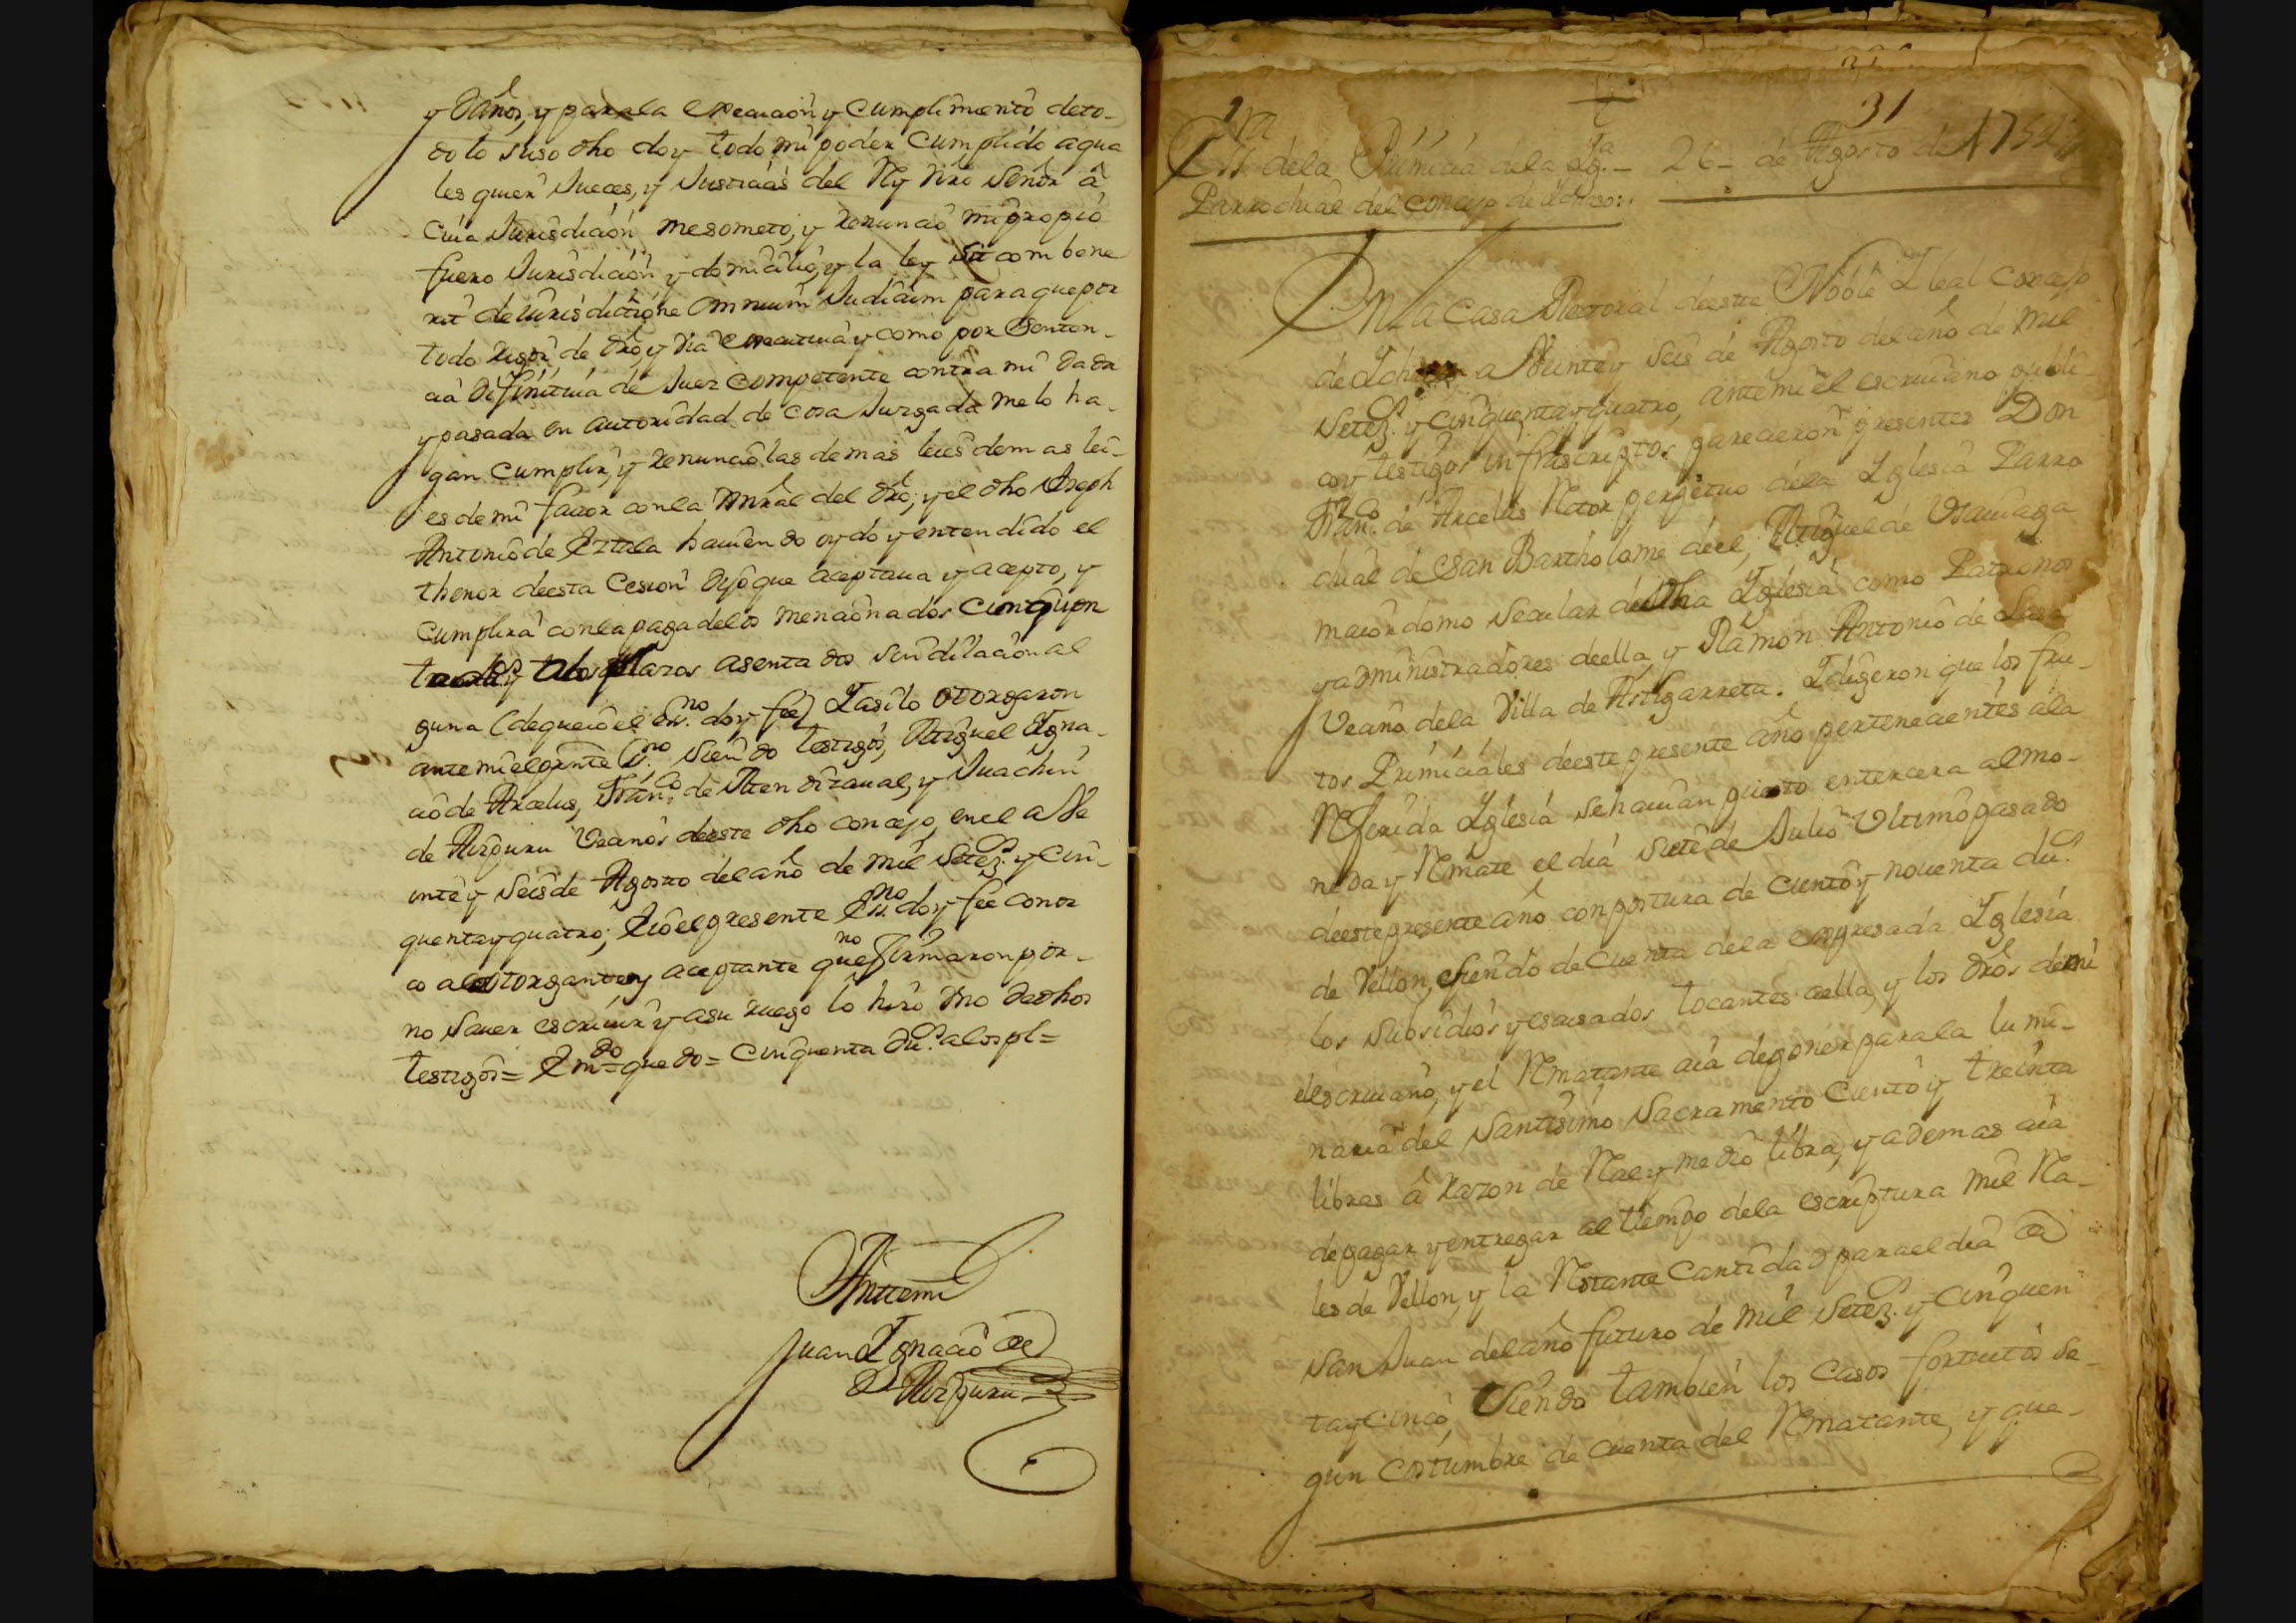 y daños, y para la execucion y cumplimiento de to-
do lo suso dho doy todo mi poder cumplido a qua
les quier Jueces, y Justicias del Rey nro Señor â
cuia Jurisdicion me someto, y renuncio mi propio
fuero Jurisdicion y domicilio, y la ley sit com bene
rit de Jurisdictione omnium Judicum para que por
todo rigor de dro, y via executiva y como por senten-
cia difinitiua de Juez competente contra mi dada
y pasada en autoridad de cosa Juzgada me lo ha-
gan cumplir, y renuncio las demas leies demas lei-
es de mi fauor con la gnral del dro; y el dho Joseph
Antonio de hauiendo oydo y entendido el
thenor de esta Cesion dijo que aceptaua y acepto, y
cumplira con la paga de los mencionados cinquen
ta y a los plazos asentados sin dilacion al
guna (de que io el essno. doy fee) Y asi lo otorgaron
ante mi el prnte Essno. siendo testigos, Miguel Igna-
cio de Arcelus, Franco. de Mendizaual, y Juachin
de Aizpuru Vecinos de este dho concejo, en el a Ve
inte y seis de Agosto del año de mil setez. y cin-
quenta y quatro; E io el presente Essno. doy fee conoz
co al otorgante y aceptante que no firmaron por-
no sauer escriuir y a su ruego lo hizo vno de dhos
testigos = Emdo = que do = cinquenta du.s a los pl =
Ante mi
Juan Ignacio de
Aizpuru
31
Essra de la Primicia de la Iga. — 26 — de Agosto de 1754
Parrochial del concejo de
En la Casa Rectoral de este Noble Y leal Concejo
de a Veinte y seis de Agosto del año de mil
setez. y cinquenta y quatro, ante mi el escriuano publi-
co y testigos infrascriptos parecieron presentes Don
Franco. de Arcelus Retor perpetuo de la Iglesia Parro
chial de San Bartholome de el, Miguel de
maiordomo secular de dha Iglesia como Patronos
y administradores de ella, y Ramon Antonio de Lasa
Vecino de la Villa de Astigarreta. Y digeron que los fru-
tos Primiciales de este presente año pertenecientes a la
Referida Iglesia se hauian puesto en tercera al mo-
neda y Remate el dia siete de Julio Vltimo pasado
de este presente año con postura de ciento y nouenta du.s
de Vellon, siendo de cuenta de la expresada Iglesia
los subsidios y escusados tocantes a ella, y los dros de mi
el escriuano, y el Rematante aia de poner para la lumi-
naria del Santisimo Sacramento ciento y treinta
libras â razon de Real y medio libra, y ademas aia
de pagar y entregar al tiempo de la escriptura mil Rea-
les de Vellon, y la Restante cantidad para el dia de
San Juan del año futuro de mil setez. y cinquen
ta y cinco, Siendo tambien los casos fortuitos se-
gun costumbre de cuenta del Rematante, y que-